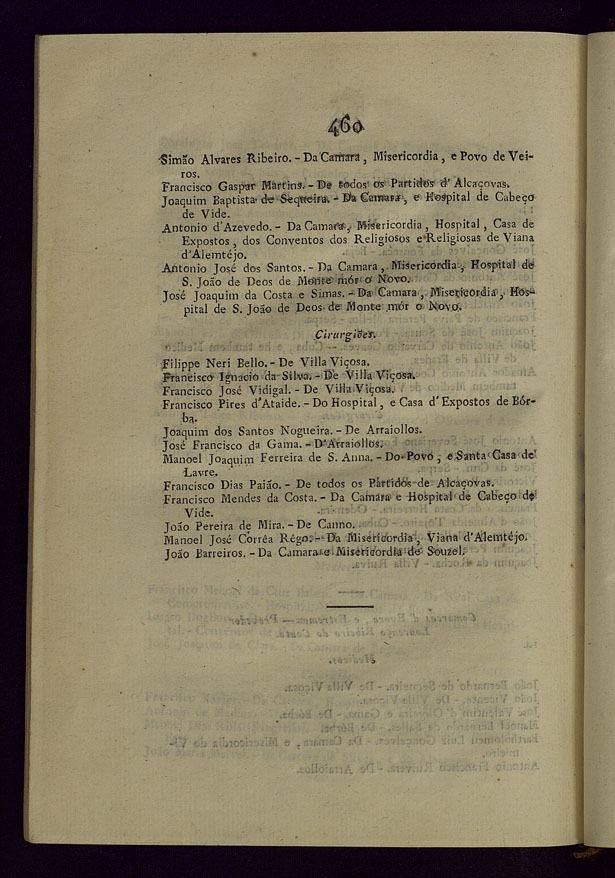 460
Simão Alvares Ribeiro. - Da Camara, Misericordia, e Povo de Vei-
ros.
Francisco Gaspar Martins. - De todos os Partidos d'Alcaçovas.
Joaquim Baptista de Sequeira. - Da Camara, e Hospital de Cabeço
de Vide.
Antonio d'Azevedo. - Da Camara, Misericordia, Hospital, Casa de
Expostos, dos Conventos dos Religiosos e Religiosas de Viana
d'Alemtéjo.
Antonio José dos Santos. - Da Camara, Misericordia, Hospital de
S. João de Deos de Monte mór o Novo.
José Joaquim da Costa e Simas. - Da Camara, Misericordia, Hos-
pital de S. João de Deos de Monte mór o Novo.
Cirurgiões.
Filippe Neri Bello. - De Villa Viçosa.
Francisco Ignacio da Silva. - De Villa Viçosa.
Francisco José Vidigal. - De Villa Viçosa.
Francisco Pires d'Ataide. - Do Hospital, e Casa d'Expostos de Bór-
ba.
Joaquim dos Santos Nogueira. - De Arraiollos.
José Francisco da Gama. - D'Arraiollos.
Manoel Joaquim Ferreira de S. Anna. - Do Povo, e Santa Casa de
Lavre.
Francisco Dias Paião. - De todos os Partidos de Alcaçovas.
Francisco Mendes da Costa. - Da Camara e Hospital de Cabeço de
Vide.
João Pereira de Mira. - De Canno.
Manoel José Corrêa Rêgo. - Da Misericordia, Viana d'Alemtéjo.
João Barreiros. - Da Camara e Misericordia de Souzel.